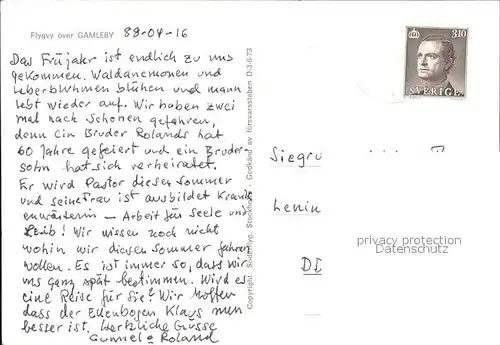 Flygvy över GAMLEBY 88-04-16
Das Früjahr ist endlich zu uns
gekommen. Waldanemonen und
Leberbluhmen blühen und mann
lebt wieder auf. Wir haben zwei
mal nach Schonen gefahren,
denn ein Bruder Rolands hat
60 Jahre gefeiert und ein Bruder-
sohn hat sich verheiratet.
Er wird Pastor diesen Sommer
und seine Frau ist ausbildet Krank
enwärterin – Arbeit für Seele und
Leib! Wir wissen noch nicht
wohin wir diesen Sommer fahren
wollen. Es ist immer so, dass wir
uns ganz spät bestimmen. Wird es
eine Reise für Sie? Wir hoffen
dass der Ellenbogen Klaus nun
besser ist. Herzliche Grüsse
Gunnel o Roland
Copyright: Stockholm - Godkänd av försvarsstaben D.3-6-73
3.10
SVERIGE
Siegru
Lenin
DI
privacy protection
Datenschutz